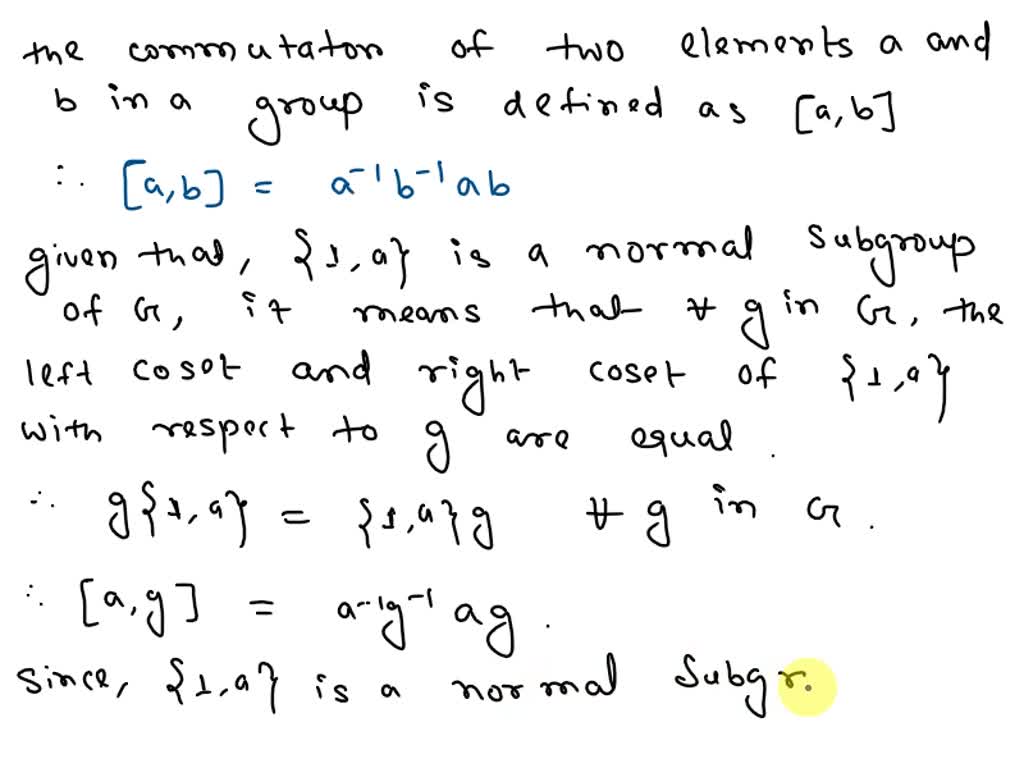 the commutator of two elements a and
b in a group is defined as [a,b]
∴ [a,b] = a⁻¹b⁻¹ab
given that, {1,a} is a normal subgroup
of G, it means that ∀ g in G, the
left coset and right coset of {1,a}
with respect to g are equal.
∴ g{1,a} = {1,a}g ∀ g in G.
∴ [a,g] = a⁻¹g⁻¹ ag.
since, {1,a} is a normal Subgr